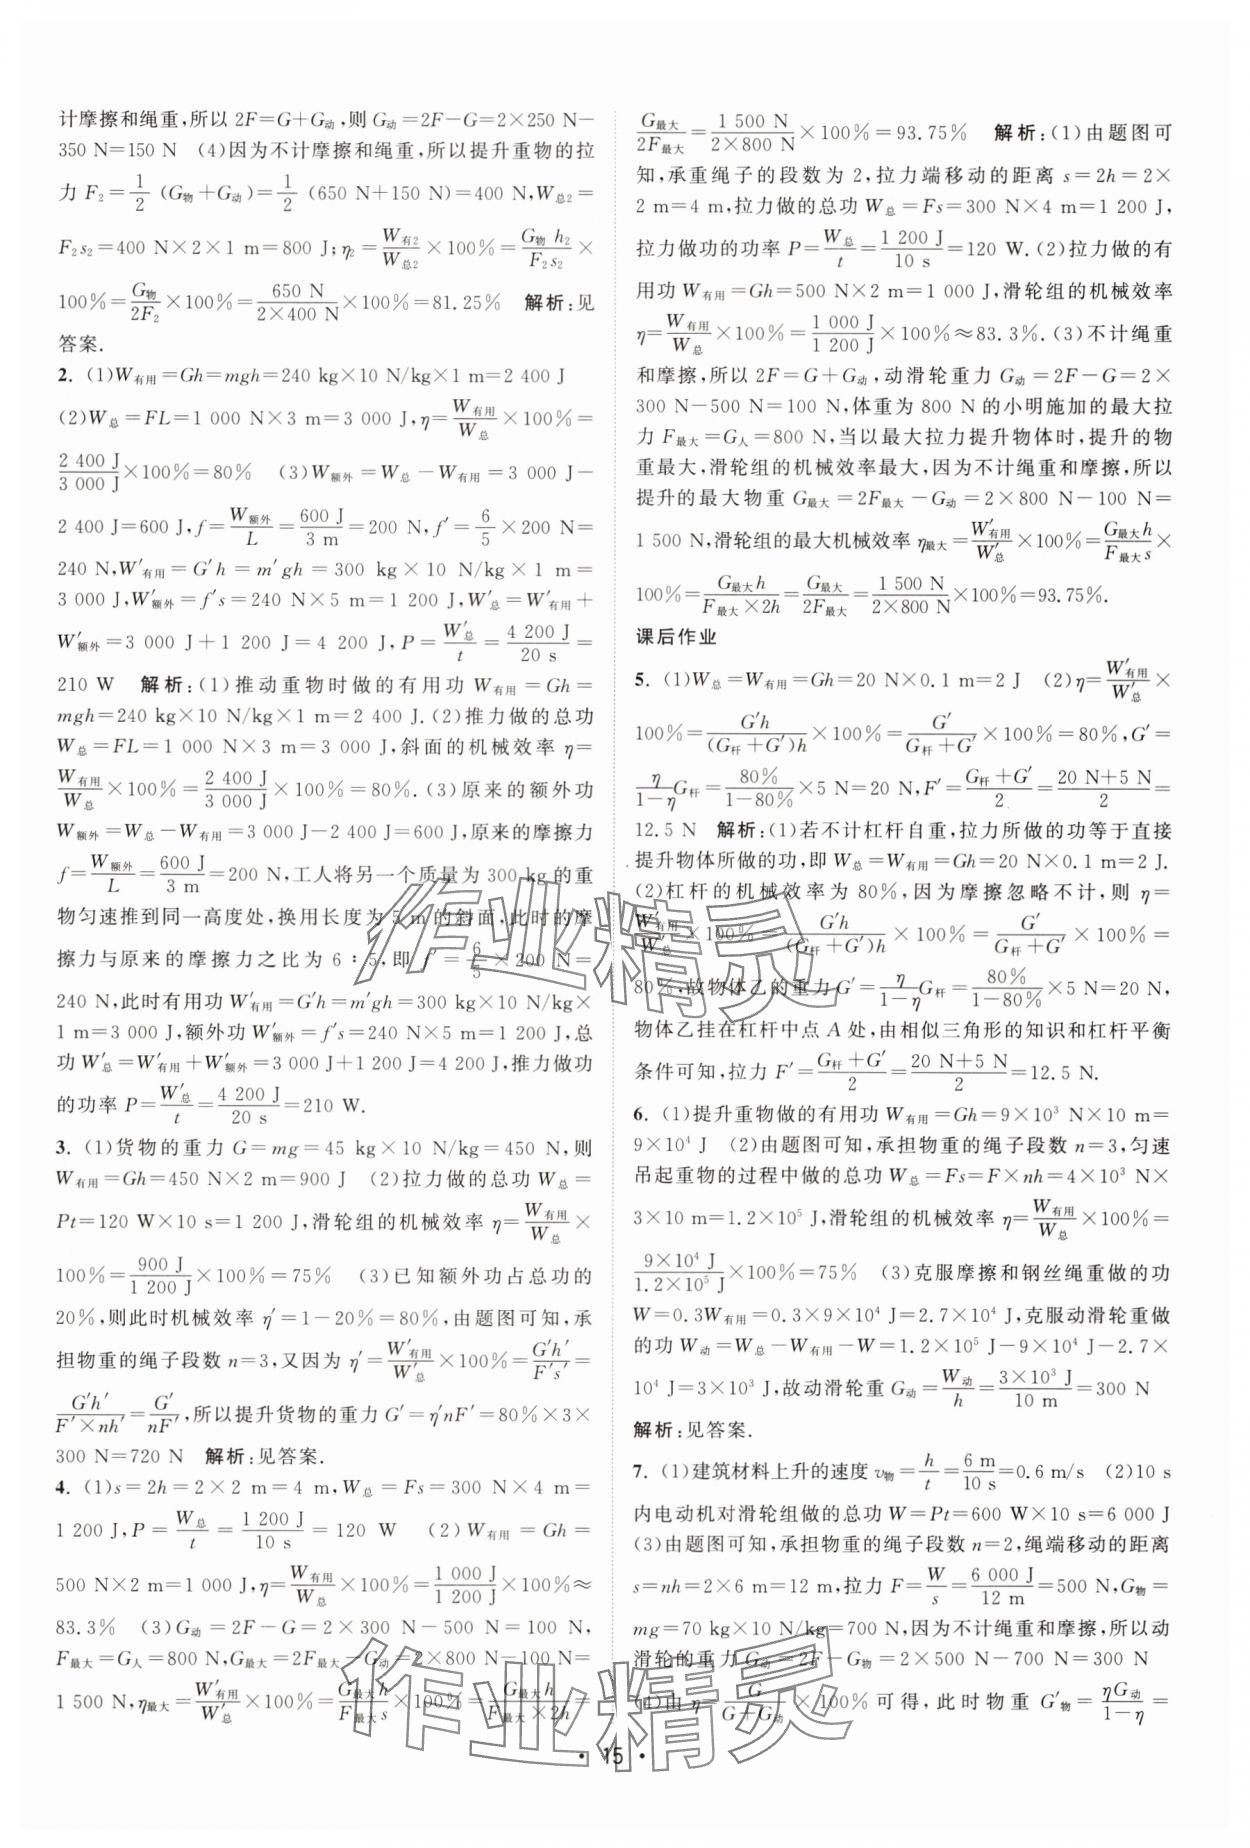 计摩擦和绳重,所以 2F=G+G动,则 G动=2F-G=2×250 N-
350 N=150 N (4)因为不计摩擦和绳重,所以提升重物的拉
力 F₂=1/2 (G物+G动)=1/2 (650 N+150 N)=400 N,W总2=
F₂s₂=400 N×2×1 m=800 J;η₂=W有2/W总2×100%=G物h₂/F₂s₂×
100%=G物/2F₂×100%=650 N/(2×400 N)×100%=81.25% 解析:见
答案.
2. (1)W有用=Gh=mgh=240 kg×10 N/kg×1 m=2 400 J
(2)W总=FL=1 000 N×3 m=3 000 J,η=W有用/W总×100%=
2 400 J/3 000 J×100%=80% (3)W额外=W总-W有用=3 000 J-
2 400 J=600 J,f=W额外/L=600 J/3 m=200 N,f′=6/5×200 N=
240 N,W′有用=G′h=m′gh=300 kg×10 N/kg×1 m=
3 000 J,W′额外=f′s=240 N×5 m=1 200 J,W′总=W′有用+
W′额外=3 000 J+1 200 J=4 200 J,P=W′总/t=4 200 J/20 s=
210 W 解析:(1)推动重物时做的有用功 W有用=Gh=
mgh=240 kg×10 N/kg×1 m=2 400 J.(2)推力做的总功
W总=FL=1 000 N×3 m=3 000 J,斜面的机械效率 η=
W有用/W总×100%=2 400 J/3 000 J×100%=80%.(3)原来的额外功
W额外=W总-W有用=3 000 J-2 400 J=600 J,原来的摩擦力
f=W额外/L=600 J/3 m=200 N,工人将另一个质量为 300 kg 的重
物匀速推到同一高度处,换用长度为 5 m 的斜面,此时的摩
擦力与原来的摩擦力之比为 6∶5,即 f′=6/5×200 N=
240 N,此时有用功 W′有用=G′h=m′gh=300 kg×10 N/kg×
1 m=3 000 J,额外功 W′额外=f′s=240 N×5 m=1 200 J,总
功 W′总=W′有用+W′额外=3 000 J+1 200 J=4 200 J,推力做功
的功率 P=W′总/t=4 200 J/20 s=210 W.
3. (1)货物的重力 G=mg=45 kg×10 N/kg=450 N,则
W有用=Gh=450 N×2 m=900 J (2)拉力做的总功 W总=
Pt=120 W×10 s=1 200 J,滑轮组的机械效率 η=W有用/W总×
100%=900 J/1 200 J×100%=75% (3)已知额外功占总功的
20%,则此时机械效率 η′=1-20%=80%,由题图可知,承
担物重的绳子段数 n=3,又因为 η′=W′有用/W′总×100%=G′h′/F′s′=
G′h′/(F′×nh′)=G′/nF′,所以提升货物的重力 G′=η′nF′=80%×3×
300 N=720 N 解析:见答案.
4. (1)s=2h=2×2 m=4 m,W总=Fs=300 N×4 m=
1 200 J,P=W总/t=1 200 J/10 s=120 W (2)W有用=Gh=
500 N×2 m=1 000 J,η=W有用/W总×100%=1 000 J/1 200 J×100%≈
83.3% (3)G动=2F-G=2×300 N-500 N=100 N,
F最大=G人=800 N,G最大=2F最大-G动=2×800 N-100 N=
1 500 N,η最大=W′有用/W′总×100%=G最大h/F最大s×100%=G最大h/(F最大×2h)=
G最大/2F最大=1 500 N/(2×800 N)×100%=93.75% 解析:(1)由题图可
知,承重绳子的段数为 2,拉力端移动的距离 s=2h=2×
2 m=4 m,拉力做的总功 W总=Fs=300 N×4 m=1 200 J,
拉力做功的功率 P=W总/t=1 200 J/10 s=120 W.(2)拉力做的有
用功 W有用=Gh=500 N×2 m=1 000 J,滑轮组的机械效率
η=W有用/W总×100%=1 000 J/1 200 J×100%≈83.3%.(3)不计绳重
和摩擦,所以 2F=G+G动,动滑轮重力 G动=2F-G=2×
300 N-500 N=100 N,体重为 800 N 的小明施加的最大拉
力 F最大=G人=800 N,当以最大拉力提升物体时,提升的物
重最大,滑轮组的机械效率最大,因为不计绳重和摩擦,所以
提升的最大物重 G最大=2F最大-G动=2×800 N-100 N=
1 500 N,滑轮组的最大机械效率 η最大=W′有用/W′总×100%=G最大h/F最大s×
100%=G最大h/(F最大×2h)=G最大/2F最大=1 500 N/(2×800 N)×100%=93.75%.
课后作业
5. (1)W总=W有用=Gh=20 N×0.1 m=2 J (2)η=W′有用/W′总×
100%=G′h/((G杆+G′)h)×100%=G′/(G杆+G′)×100%=80%,G′=
η/(1-η)G杆=80%/(1-80%)×5 N=20 N,F′=(G杆+G′)/2=(20 N+5 N)/2=
12.5 N 解析:(1)若不计杠杆自重,拉力所做的功等于直接
提升物体所做的功,即 W总=W有用=Gh=20 N×0.1 m=2 J.
(2)杠杆的机械效率为 80%,因为摩擦忽略不计,则 η=
W′有用/W′总×100%=G′h/((G杆+G′)h)×100%=G′/(G杆+G′)×100%=
80%,故物体乙的重力 G′=η/(1-η)G杆=80%/(1-80%)×5 N=20 N,
物体乙挂在杠杆中点 A 处,由相似三角形的知识和杠杆平衡
条件可知,拉力 F′=(G杆+G′)/2=(20 N+5 N)/2=12.5 N.
6. (1)提升重物做的有用功 W有用=Gh=9×10³ N×10 m=
9×10⁴ J (2)由题图可知,承担物重的绳子段数 n=3,匀速
吊起重物的过程中做的总功 W总=Fs=F×nh=4×10³ N×
3×10 m=1.2×10⁵ J,滑轮组的机械效率 η=W有用/W总×100%=
9×10⁴ J/1.2×10⁵ J×100%=75% (3)克服摩擦和钢丝绳重做的功
W=0.3W有用=0.3×9×10⁴ J=2.7×10⁴ J,克服动滑轮重做
的功 W动=W总-W有用-W=1.2×10⁵ J-9×10⁴ J-2.7×
10⁴ J=3×10³ J,故动滑轮重 G动=W动/h=3×10³ J/10 m=300 N
解析:见答案.
7. (1)建筑材料上升的速度 v物=h/t=6 m/10 s=0.6 m/s (2)10 s
内电动机对滑轮组做的总功 W=Pt=600 W×10 s=6 000 J
(3)由题图可知,承担物重的绳子段数 n=2,绳端移动的距离
s=nh=2×6 m=12 m,拉力 F=W/s=6 000 J/12 m=500 N,G物=
mg=70 kg×10 N/kg=700 N,因为不计绳重和摩擦,所以动
滑轮的重力 G动=2F-G物=2×500 N-700 N=300 N
(4)由 η=G/(G+G动)×100%可得,此时物重 G′物=ηG动/(1-η)=
• 15 •
作业精灵
作业精灵